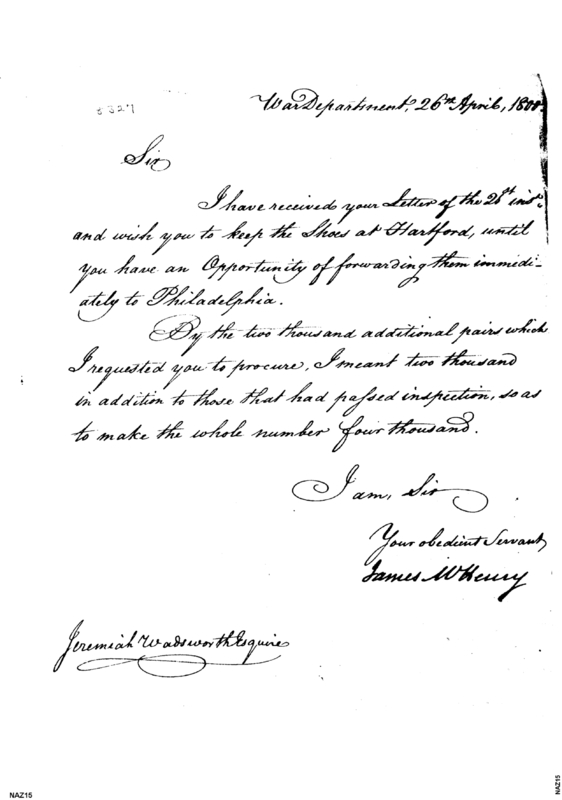 8327
War Department, 26th April, 1800
Sir
I have received your Letter of the 21st inst.
and wish you to keep the Shoes at Hartford, until
you have an Opportunity of forwarding them immedi-
ately to Philadelphia.
By the two thousand additional pairs which
I requested you to procure, I meant two thousand
in addition to those that had passed inspection, so as
to make the whole number four thousand.
I am, Sir
Your obedient Servant,
James McHenry
Jeremiah Wadsworth Esquire
NAZ15
NAZ15